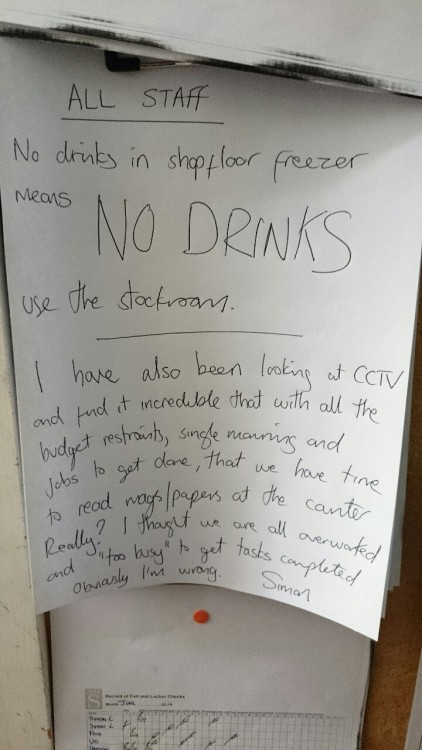 ALL STAFF
No drinks in shopfloor freezer
means
NO DRINKS
use the stockroom.
I have also been looking at CCTV
and find it incredible that with all the
budget restraints, single manning and
jobs to get done, that we have time
to read mags/papers at the counter
Really? I thought we are all overworked
and "too busy" to get tasks completed
Obviously I'm wrong. Simon
Record of Exit and Locker Checks